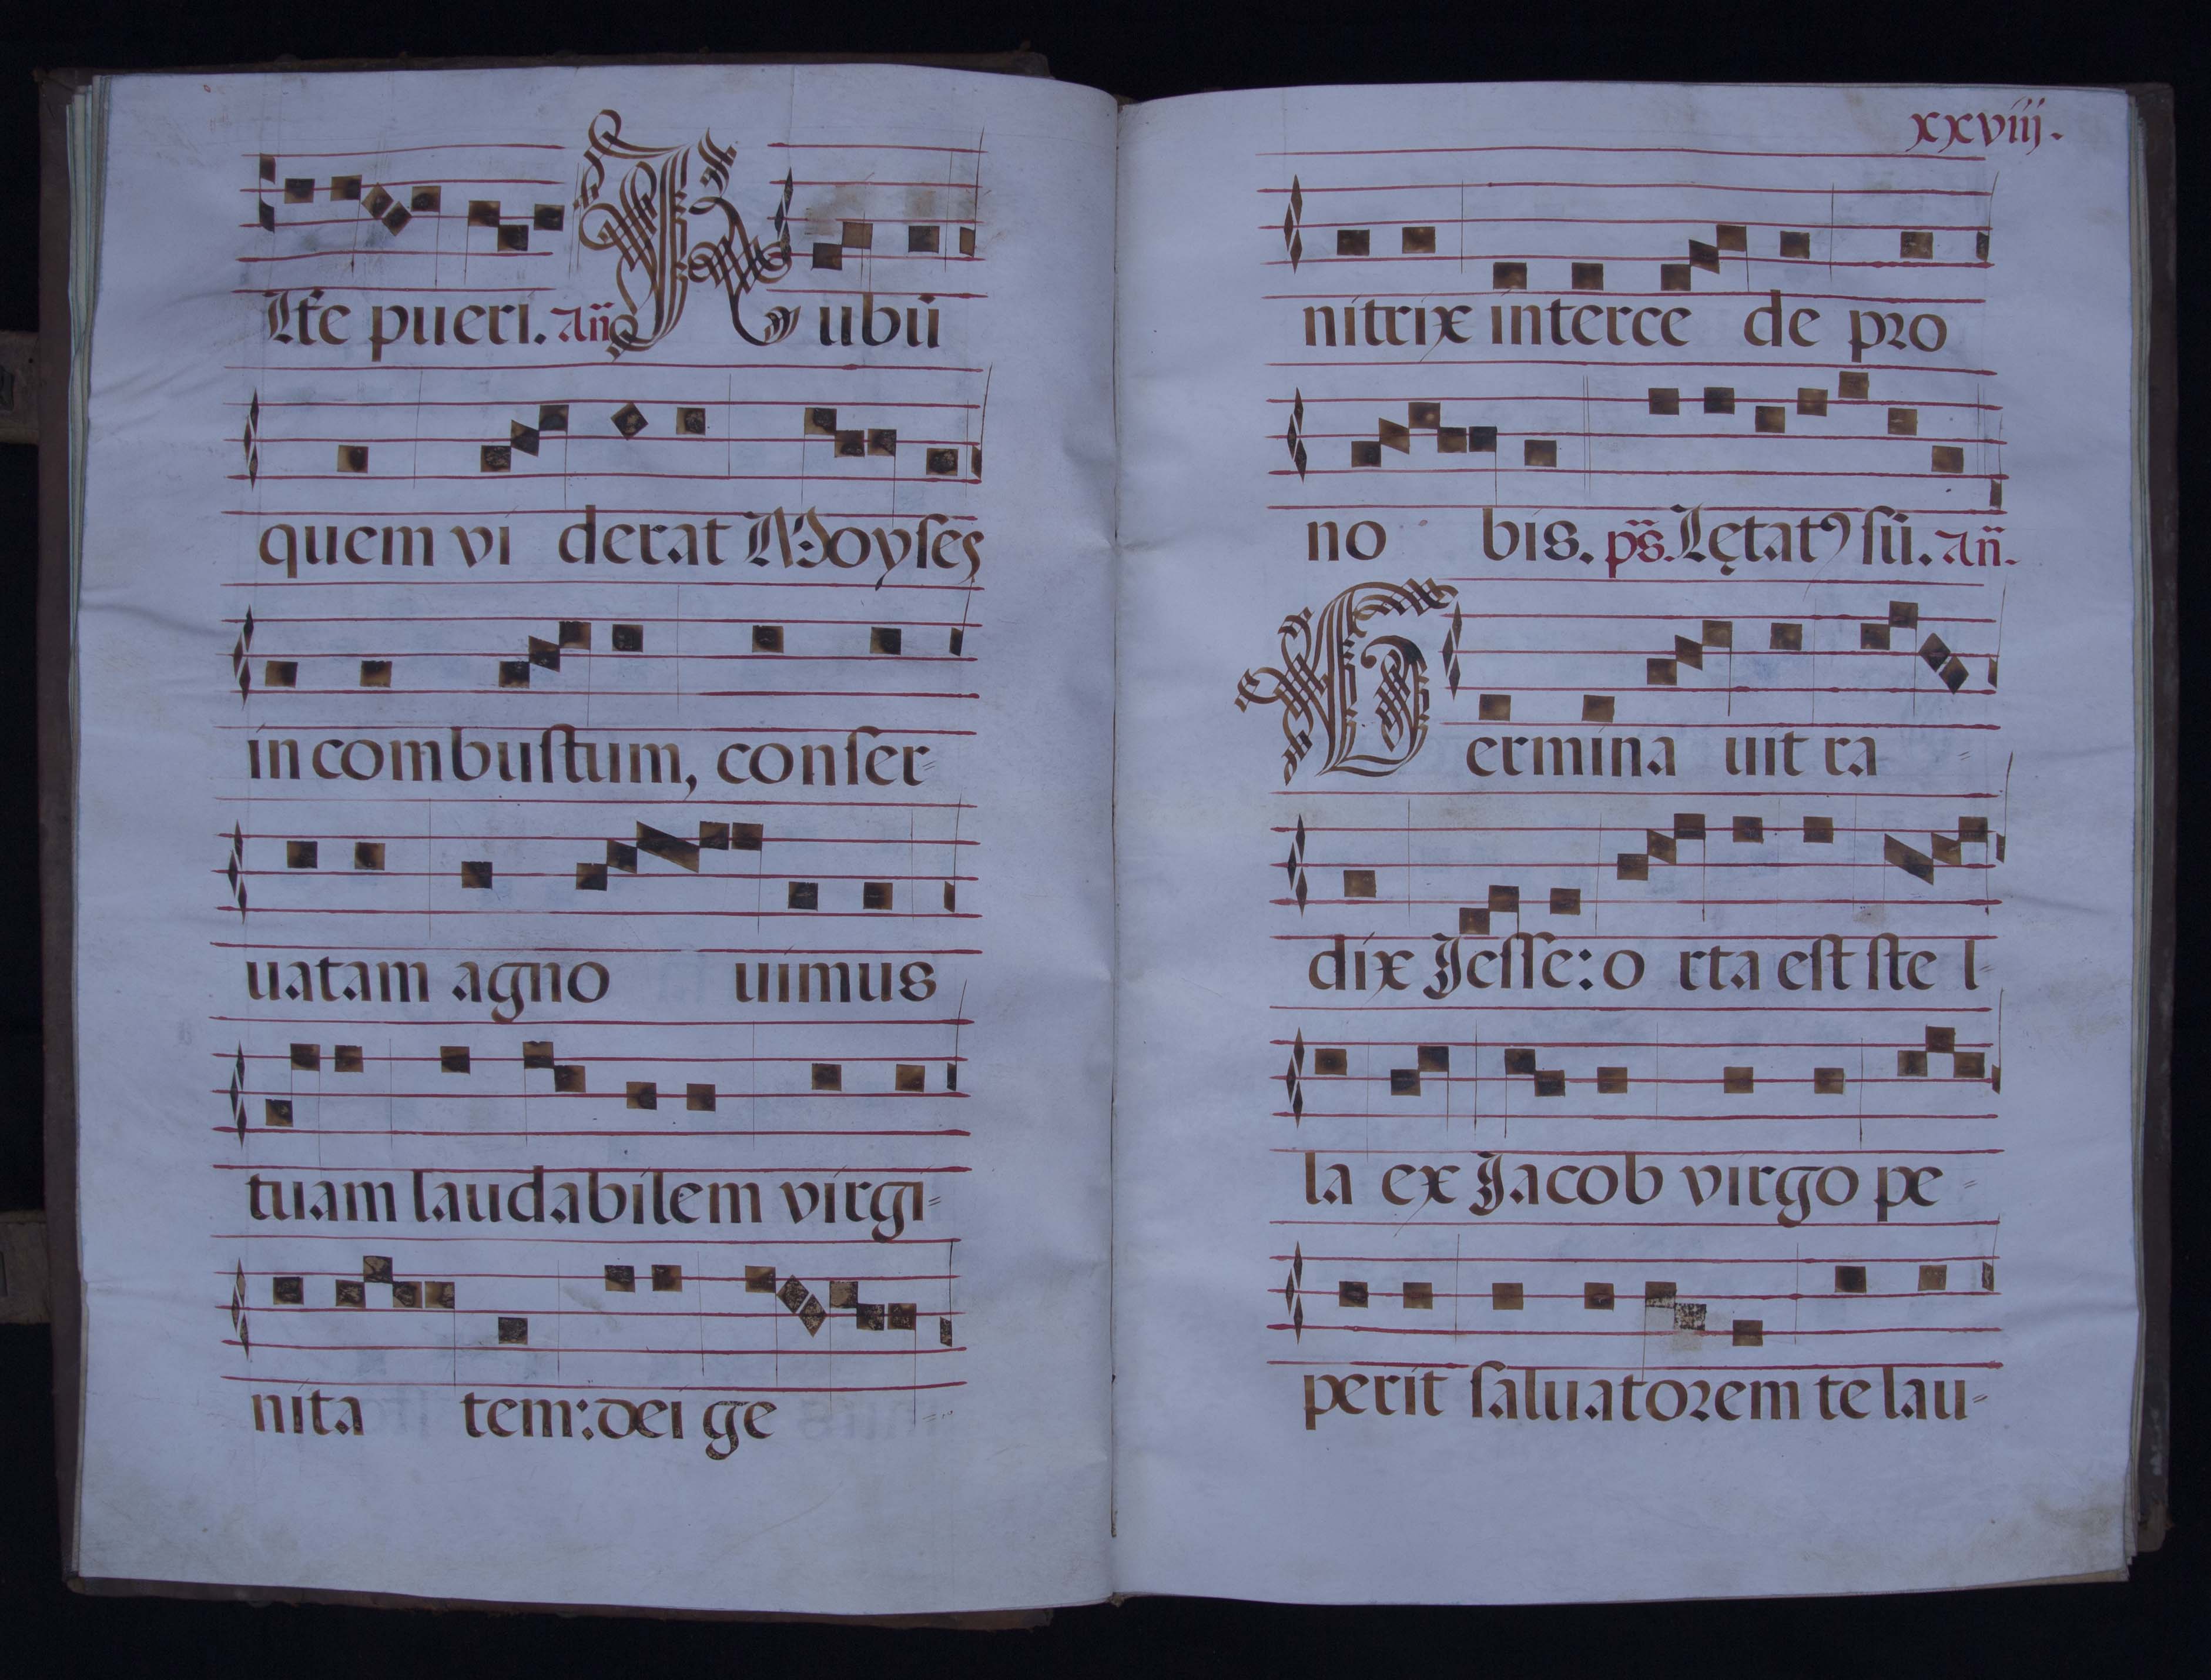 Lte pueri. Añ Rubū
quem vi derat Moyses
incombustum, conser=
uatam agno uimus
tuam laudabilem virgi=
nita tem: dei ge =
xxviij.
nitrix interce de pro
no bis. ps. Lętatꝰ sū. Añ.
Germina uit ra =
dix Jesse: o rta est ste l=
la ex Jacob virgo pe =
perit saluatorem te lau=